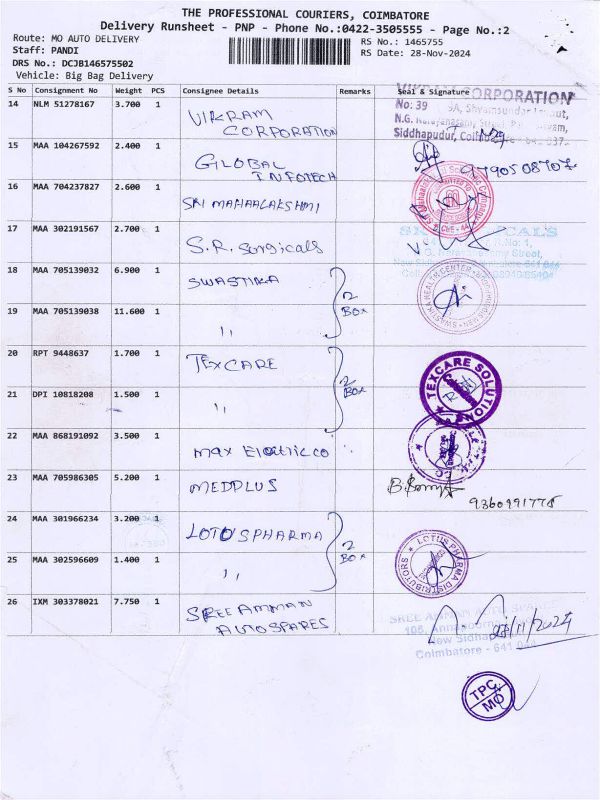 THE PROFESSIONAL COURIERS, COIMBATORE
Delivery Runsheet - PNP - Phone No.:0422-3505555 - Page No.:2
Route: MO AUTO DELIVERY
RS No.: 1465755
Staff: PANDI
RS Date: 28-Nov-2024
DRS No.: DCJB146575502
Vehicle: Big Bag Delivery
S No Consignment No Weight PCS Consignee Details Remarks Seal & Signature
14 NLM 51278167 3.700 1 VIKRAM CORPORATION
CORPORATION
No: 39
N.G.
Siddhapudur,
15 MAA 104267592 2.400 1 GLOBAL INFOTECH
9790508707
16 MAA 704237827 2.600 1 SRI MAHAALAKSHMI
17 MAA 302191567 2.700 1 S.R. Surgicals
18 MAA 705139032 6.900 1 SWASTIKA 2 BOX
SWASTIKA HEALTH CENTER
19 MAA 705139038 11.600 1 ,,
20 RPT 9448637 1.700 1 TEXCARE 2 BOX
TEXCARE SOLUTIONS
21 DPI 10818208 1.500 1 ,,
22 MAA 868191092 3.500 1 Max Electric co
23 MAA 705986305 5.200 1 MEDPLUS
24 MAA 301966234 3.200 1 LOTUS PHARMA 2 BOX
LOTUS PHARMA DISTRIBUTORS
25 MAA 302596609 1.400 1 ,,
26 IXM 303378021 7.750 1 SREE AMMAN AUTOSPARES
SREE AMMAN AUTO
New
Coimbatore - 641
TPC
MO